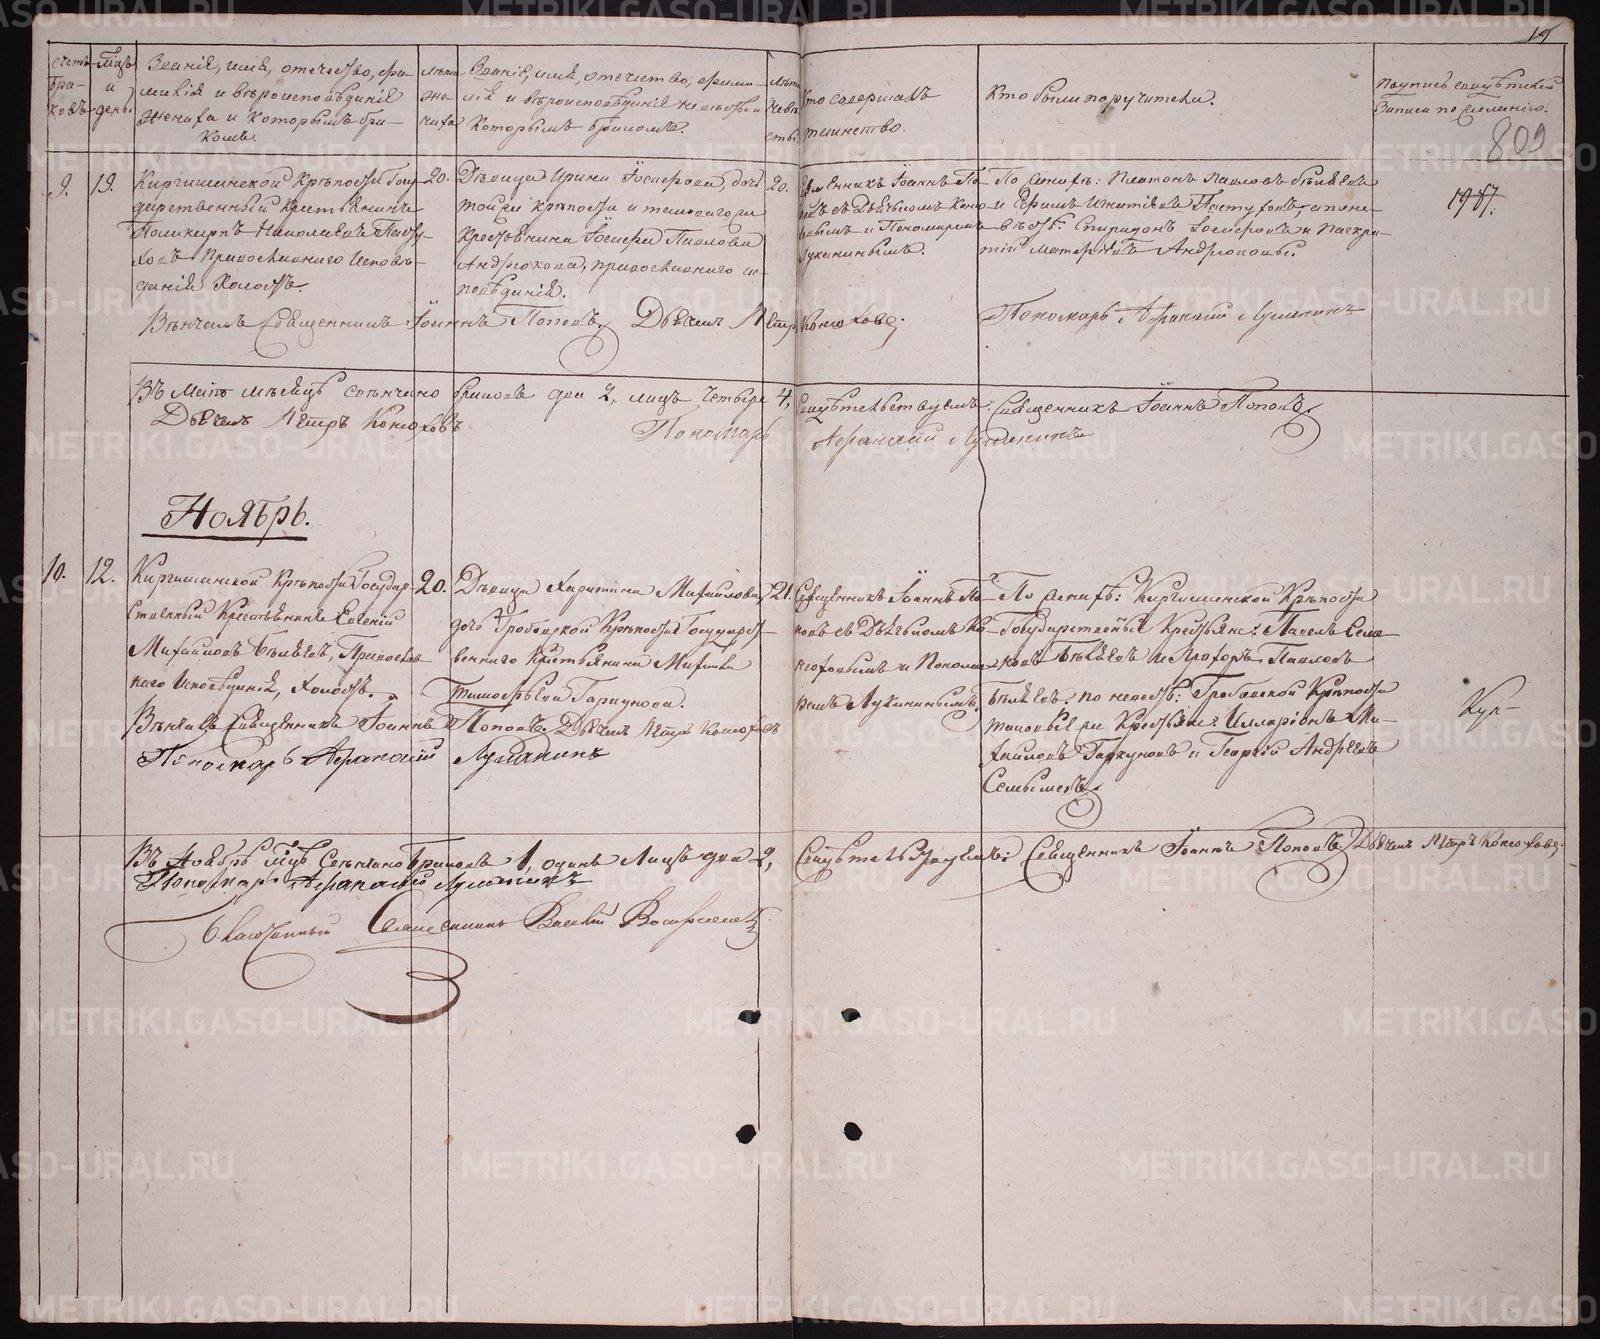 14
809
счетъ бра- ковъ
мѣсяцъ и день.
Званіе, имя, отчество, фа-
милія и вѣроисповѣданіе
жениха и которымъ бра-
комъ.
лѣта же- ниха
Званіе, имя, отчество, фами-
лія и вѣроисповѣданіе невѣсты и
которымъ бракомъ.
лѣта невѣ- сты
Кто совершалъ
таинство.
Кто были поручители.
Подпись свидѣтелей
записи по желанію.
9.
19.
Киргишанской Крѣпости Госу-
дарственный Крестьянинъ
Поликарпъ Николаевъ Пасту-
ховъ Православнаго Исповѣ-
данія Холостъ.
20.
Дѣвица Ирина Іосифова, дочь
той же крѣпости и таковаго же
Крестьянина Іосифа Павлова
Андрюкова, православнаго ис-
повѣданія.
20.
Священникъ Іоаннъ По-
повъ съ Дьячкомъ Коню-
ховымъ и Пономаремъ
Лукинымъ.
По женихѣ: Платонъ Павловъ Бѣляевъ
и Ефимъ Игнатьевъ Пастуховъ, а по не-
вѣстѣ: Спиридонъ Іосифовъ и Панкра-
тій Андрюковы.
Вѣнчалъ Священникъ Іоаннъ Поповъ. Дьячекъ Петръ Конюховъ.
Пономарь Афанасій
Въ маѣ мѣсяцѣ свѣнчано браковъ два 2, лицъ четыре 4,
Свидѣтельствуемъ: Священникъ Іоаннъ Поповъ
Дьячекъ Петръ Конюховъ
Пономарь Афанасій
Ноябрь.
10.
12.
Киргишанской Крѣпости Государ-
ственный Крестьянинъ Евгеній
Михайловъ Бѣляевъ, Православ-
наго Исповѣданія, Холостъ.
20.
Дѣвица Харитина Михайлова,
дочь Гробовской Крѣпости Государст-
веннаго Крестьянина Михаила
Тимофѣева Гаркунова.
21.
Священникъ Іоаннъ По-
повъ съ Дьячкомъ Ко-
нюховымъ и Понома-
ремъ
По женихѣ: Киргишанской Крѣпости
Государственные Крестьяне: Павелъ
Бѣляевъ и Прохоръ Павловъ
Бѣляевъ. по невѣстѣ: Гробовской Крѣпости
таковые же Крестьяне Илларіонъ Ми-
хайловъ Гаркуновъ и Георгій Андреевъ
Вѣнчалъ Священникъ Іоаннъ Поповъ. Дьячекъ Петръ Конюховъ
Пономарь Афанасій
Въ Ноябрѣ мѣсяцѣ Свѣнчано Браковъ 1, одинъ Лицъ два 2,
Свидѣтельствуемъ: Священникъ Іоаннъ Поповъ Дьячекъ Петръ Конюховъ.
Пономарь Афанасій
Благочинный Священникъ Василій
METRIKI.GASO-URAL.RU